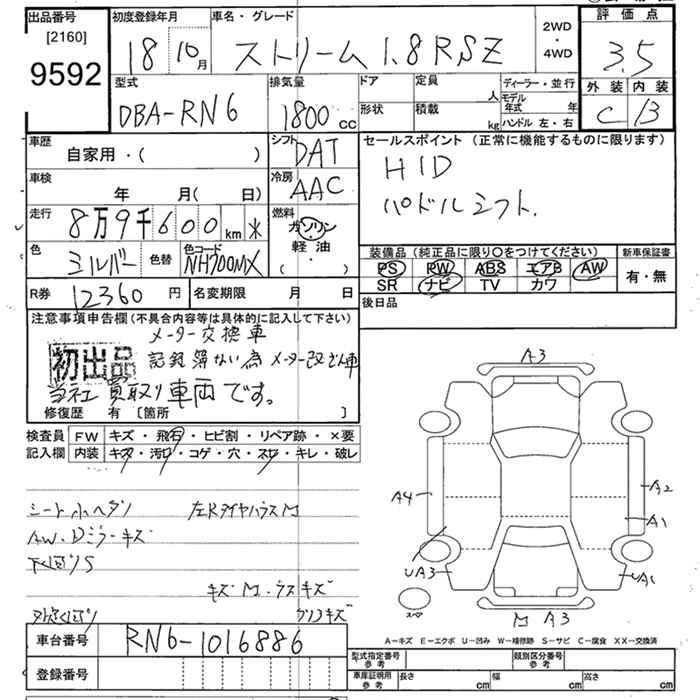 出品番号 初度登録年月 車名・グレード 2WD ・ 4WD 評価点
[2160]
9592 18 10月 ストリーム 1.8 RSZ 3.5
外装 内装
C B
型式 排気量 ドア 定員 人 ディーラー・並行
DBA-RN6 1800cc 形状 積載 kg モデル年式 年
ハンドル 左・右
車歴 シフト セールスポイント (正常に機能するものに限ります)
自家用・( ) DAT HID
車検 冷房
年 月( 日) AAC パドルシフト.
走行 燃料
8万9千600km ※ ガソリン
軽油
( ・ )
色 色替 色コード 装備品 (純正品に限り○をつけてください) 新車保証書
シルバー NH700MX PS PW ABS エアB AW 有・無
SR ナビ TV カワ
R券 12360円 名変期限 月 日 後日品
注意事項申告欄(不具合内容等は具体的に記入して下さい)
メーター交換車
初出品 記録簿ない為 メーター改ざん車
当社買取り車両です。
修復歴 有 [箇所 ]
検査員 FW キズ・飛石・ヒビ割・リペア跡・×要
記入欄 内装 キズ・汚れ・コゲ・穴・スレ・キレ・破レ
シート小ヘタリ 左Rタイヤハウス
AW・Dミラーキズ
下
キズ
キズ
A3
A4 A2
A1
UA3 UA1
A3
A－キズ E－エクボ U－凹み W－補修跡 S－サビ C－腐食 XX－交換済
車台番号 RN6-1016886
登録番号
型式指定番号 参考 類別区分番号 参考
車庫証明用 参考 長さ cm 幅 cm 高さ cm